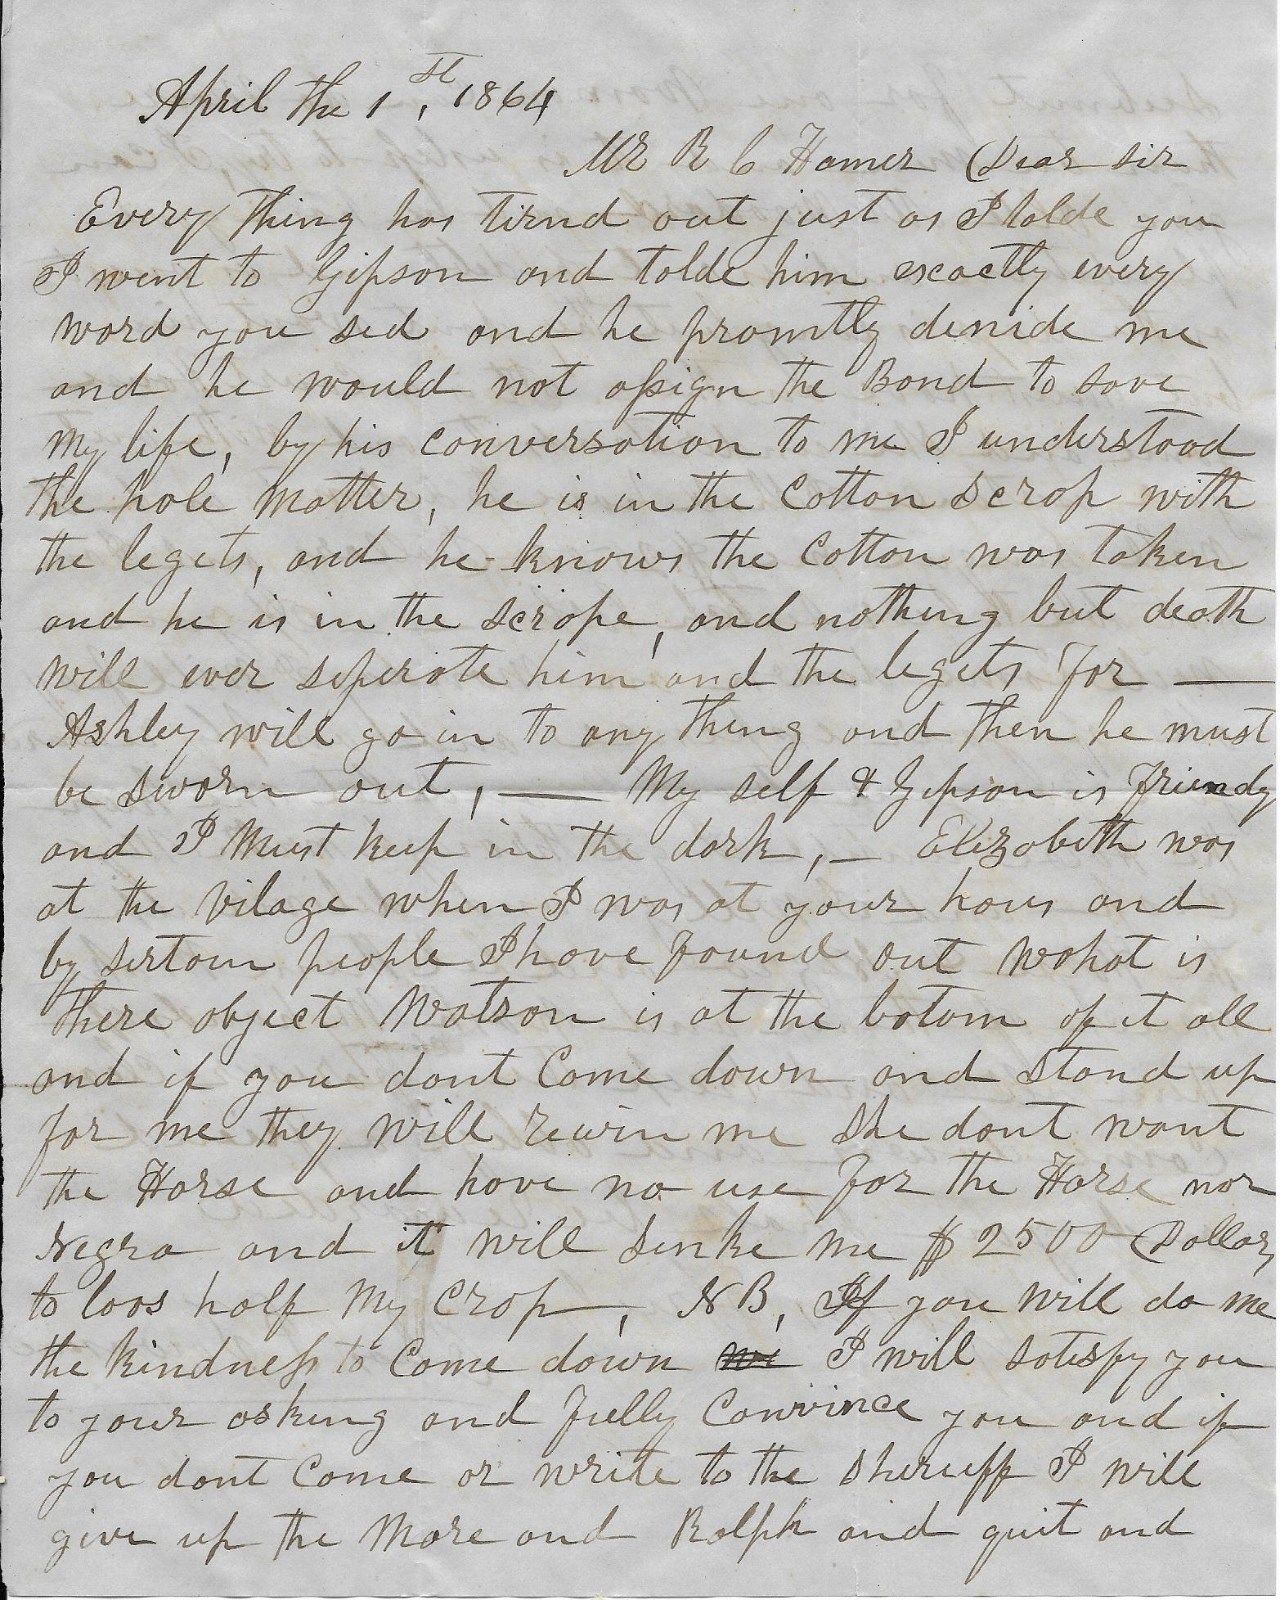 April the 1st, 1864
Mr R C Hamer Dear sir
Every thing has tirnd out just as I tolde you
I went to Gipson and tolde him exactly every
word you sed and he promtly denide me
and he would not assign the Bond to save
My life, by his conversation to me I understood
the hole matter, he is in the Cotton scrap with
the legets, and he knows the Cotton was taken
and he is in the scrape, and nothing but death
will ever seperate him and the legets for —
Ashley will go in to any thing and then he must
be sworn out, — My self & Gipson is Friendy
and I Must keep in the dark, — Elizabeth was
at the vilage when I was at your hous and
by sertain people I have found out wahat is
there object Watson is at the botom of it all
and if you dont Come down and stand up
for me they will rewin me she dont want
the Horse and have no use for the Horse nor
Negro and it will sinke me $2500 Dollars
to loos half My Crop, NB, If you will do me
the kindness to Come down I will satisfy you
to your asking and fully Convince you and if
you dont Come or write to the sheriff I will
give up the Mare and Ralph and quit and